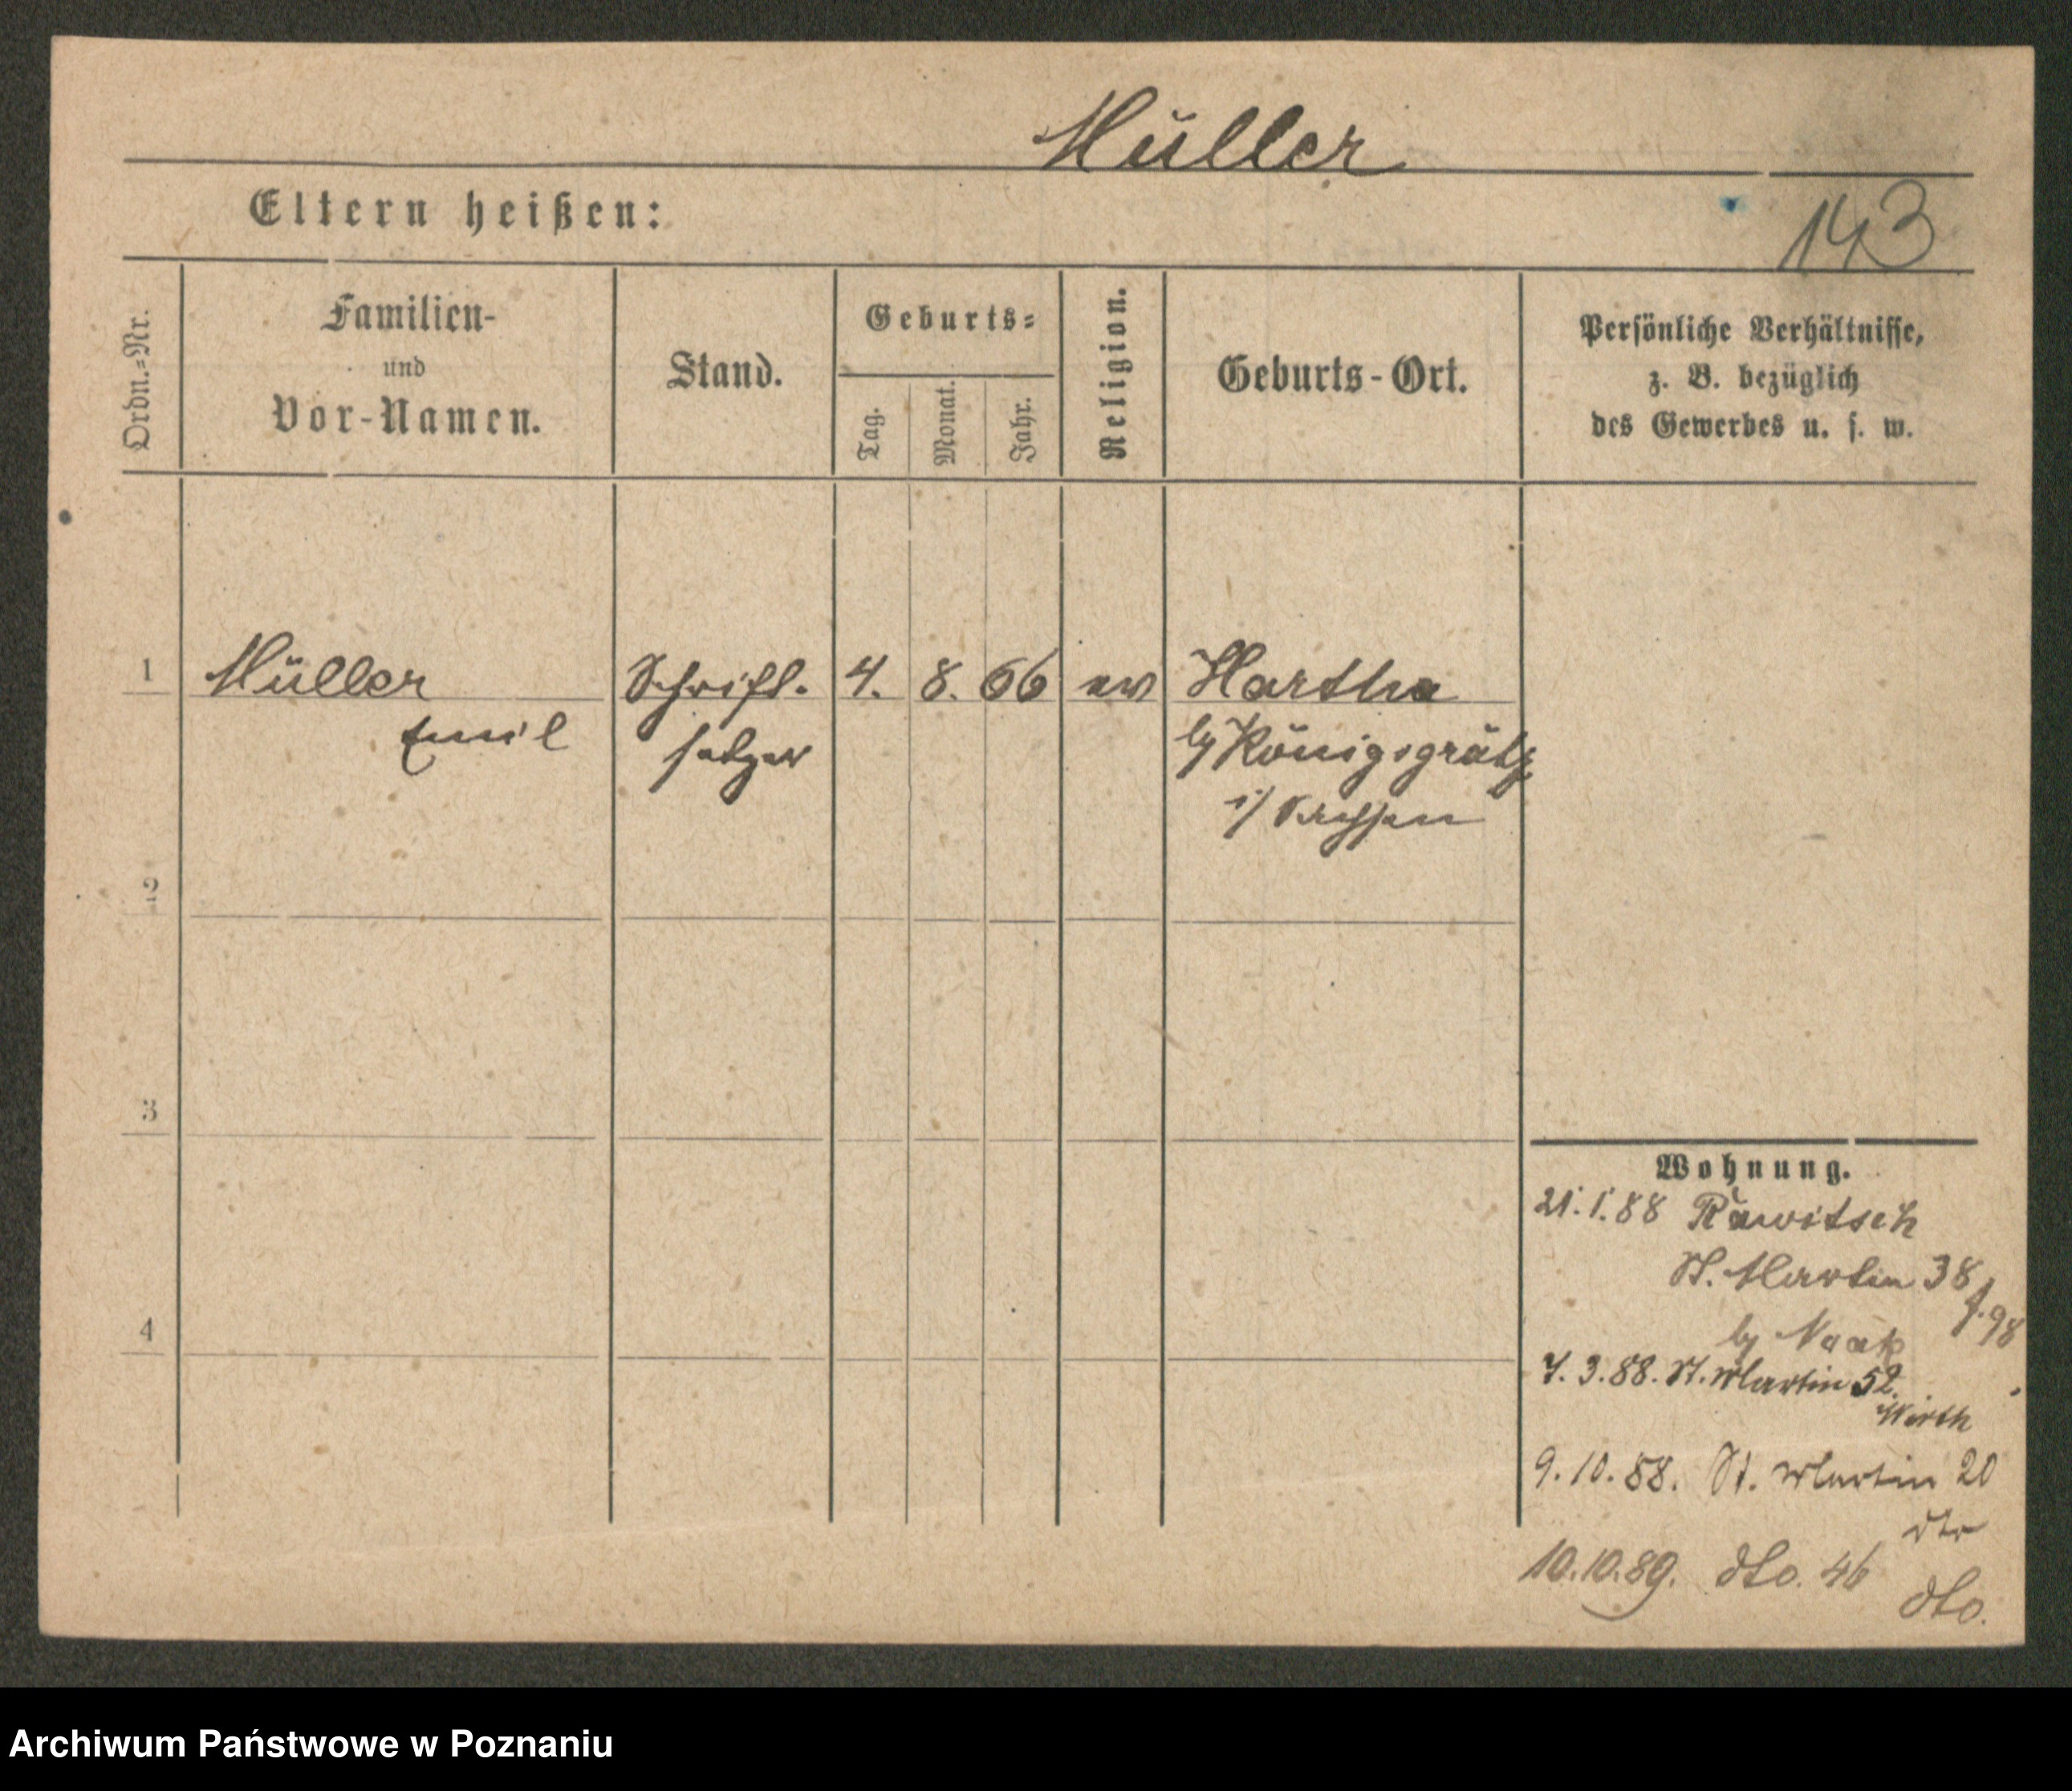 Müller
Eltern heißen:
143
Ordn.=Nr.
Familien-
und
Vor-Namen.
Stand.
Geburts=
Tag.
Monat.
Jahr.
Religion.
Geburts-Ort.
Persönliche Verhältnisse,
z. B. bezüglich
des Gewerbes u. s. w.
1
Müller
Emil
Schrift-
setzer
4. 8. 66
ev
Hartha
by Königsgrätz
i/ Sachsen
2
3
4
Wohnung.
21.1.88 Rawitsch
St. Martin 38
f. 98
by Naak
7.3.88. St. Martin 52.
Wirth
9.10.88. St. Martin 20
dto
10.10.89. dto. 46
dto.
Archiwum Państwowe w Poznaniu